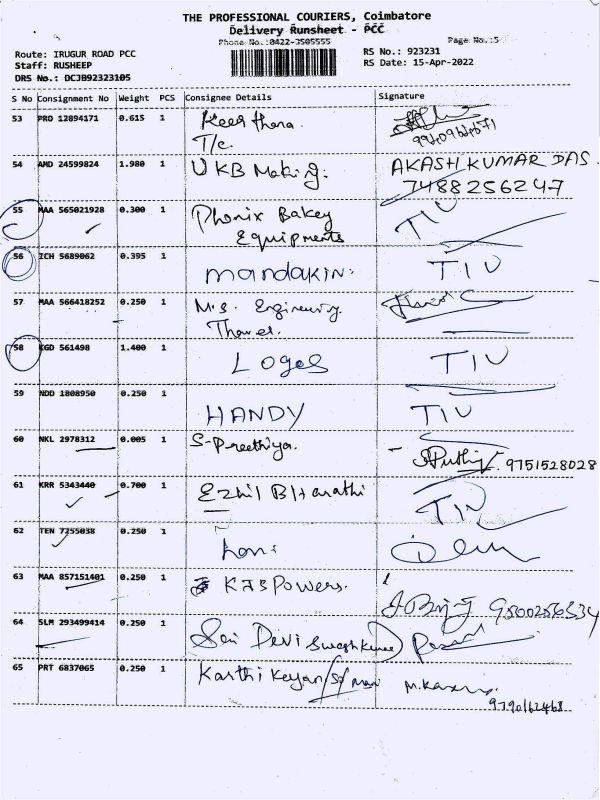 THE PROFESSIONAL COURIERS, Coimbatore
Delivery Runsheet - PCC
Phone No.:0422-3505555
Page No.:5
Route: IRUGUR ROAD PCC
RS No.: 923231
Staff: RUSHEEP
RS Date: 15-Apr-2022
DRS No.: DCJB92323105
S No Consignment No Weight PCS Consignee Details Signature
53 PRO 12894171 0.615 1 Keerthana
T/c.
54 AMD 24599824 1.980 1 UKB Making. AKASH KUMAR DAS.
7488256247
55 MAA 565021928 0.300 1 Phonix Bakey TIV
Equipments
56 ICH 5689062 0.395 1 mandakin. TIV
57 MAA 566418252 0.250 1 M.S. Engineering
58 KGD 561498 1.400 1 LOGOS TIV
59 NDD 1808950 0.250 1 HANDY TIV
60 NKL 2978312 0.005 1 S-Preethiya. 9751528028
61 KRR 5343440 0.700 1 Ezhil Bharathi TIV
62 TEN 7255038 0.250 1
63 MAA 857151401 0.250 1 Powers. 9500256534
64 SLM 293499414 0.250 1 Sai Devi
65 PRT 6837065 0.250 1 Karthi Keyan
9790162468